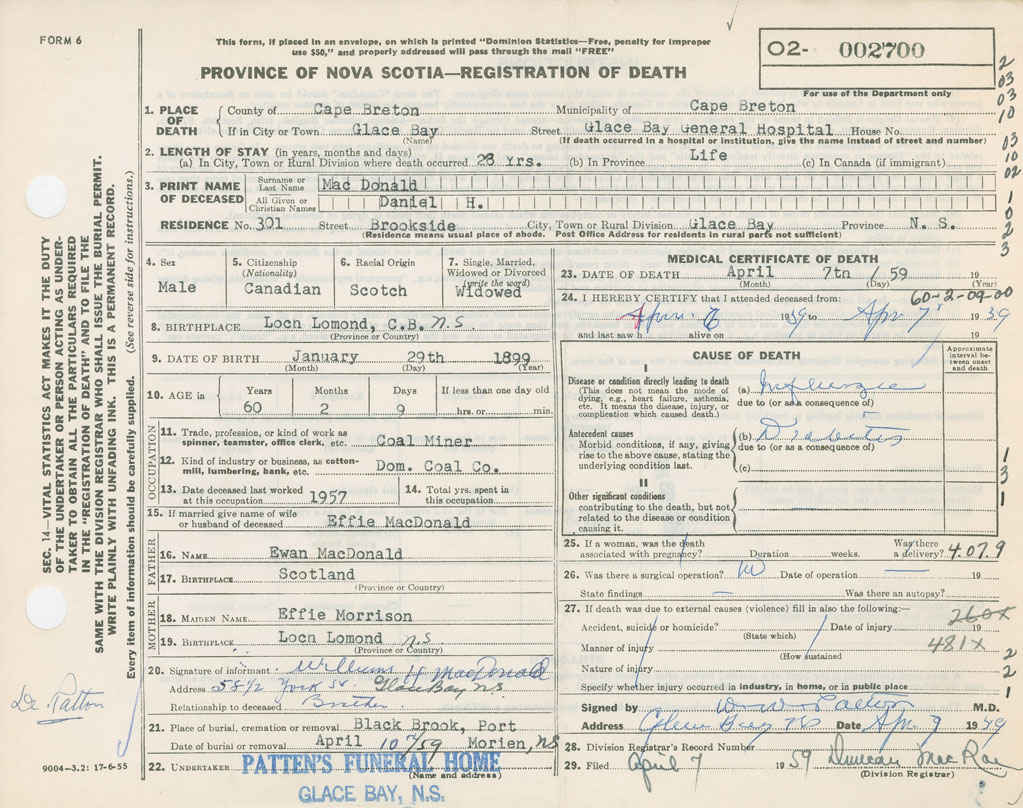 FORM 6
This form, if placed in an envelope, on which is printed "Dominion Statistics—Free, penalty for improper
use $50," and properly addressed will pass through the mail "FREE"
02- 002700
For use of the Department only
PROVINCE OF NOVA SCOTIA—REGISTRATION OF DEATH
2
03
03
10
03
10
02
1
0
2
3
1. PLACE OF DEATH County of Cape Breton Municipality of Cape Breton
If in City or Town Glace Bay Street Glace Bay General Hospital House No.
(Name) (If death occurred in a hospital or institution, give the name instead of street and number)
2. LENGTH OF STAY (in years, months and days)
(a) In City, Town or Rural Division where death occurred 23 Yrs. (b) In Province Life (c) In Canada (if immigrant)
3. PRINT NAME OF DECEASED Surname or Last Name Mac Donald
All Given or Christian Names Daniel H.
RESIDENCE No. 301 Street Brookside City, Town or Rural Division Glace Bay Province N. S.
(Residence means usual place of abode. Post Office Address for residents in rural parts not sufficient)
SEC. 14—VITAL STATISTICS ACT MAKES IT THE DUTY
OF THE UNDERTAKER OR PERSON ACTING AS UNDER-
TAKER TO OBTAIN ALL THE PARTICULARS REQUIRED
IN THE "REGISTRATION OF DEATH" AND TO FILE THE
SAME WITH THE DIVISION REGISTRAR WHO SHALL ISSUE THE BURIAL PERMIT.
WRITE PLAINLY WITH UNFADING INK. THIS IS A PERMANENT RECORD.
Every item of information should be carefully supplied. (See reverse side for instructions.)
4. Sex
Male
5. Citizenship
(Nationality)
Canadian
6. Racial Origin
Scotch
7. Single, Married,
Widowed or Divorced
(write the word)
Widowed
8. BIRTHPLACE Loch Lomond, C.B. N.S
(Province or Country)
9. DATE OF BIRTH January 29th 1899
(Month) (Day) (Year)
10. AGE in Years Months Days If less than one day old
60 2 9 hrs. or min.
OCCUPATION
11. Trade, profession, or kind of work as
spinner, teamster, office clerk, etc. Coal Miner
12. Kind of industry or business, as cotton-
mill, lumbering, bank, etc. Dom. Coal Co.
13. Date deceased last worked
at this occupation 1957
14. Total yrs. spent in
this occupation
15. If married give name of wife
or husband of deceased Effie MacDonald
FATHER
16. NAME Ewan MacDonald
17. BIRTHPLACE Scotland
(Province or Country)
MOTHER
18. MAIDEN NAME Effie Morrison
19. BIRTHPLACE Loch Lomond N.S
(Province or Country)
20. Signature of informant William H MacDonald
Address 58 1/2 York St. Glace Bay N.S.
Relationship to deceased Brother
Dr. Patton
21. Place of burial, cremation or removal Black Brook, Port
Date of burial or removal April 10 /59 Morien, NS
22. UNDERTAKER PATTEN'S FUNERAL HOME
(Name and address)
GLACE BAY, N.S.
9004—3.2: 17-6-55
MEDICAL CERTIFICATE OF DEATH
23. DATE OF DEATH April 7th / 59 19
(Month) (Day) (Year)
24. I HEREBY CERTIFY that I attended deceased from: 60-2-09-00
April 6 1959 to Apr 7 1959
and last saw h alive on 19
CAUSE OF DEATH
Approximate
interval be-
tween onset
and death
I
Disease or condition directly leading to death
(This does not mean the mode of
dying, e.g., heart failure, asthenia,
etc. It means the disease, injury, or
complication which caused death.)
(a) Influenzia
due to (or as a consequence of)
Antecedent causes
Morbid conditions, if any, giving
rise to the above cause, stating the
underlying condition last.
(b) Diabetes
due to (or as a consequence of)
(c)
II
Other significant conditions
contributing to the death, but not
related to the disease or condition
causing it.
1
3
1
25. If a woman, was the death
associated with pregnancy? Duration weeks. Was there
a delivery? 4.07.9
26. Was there a surgical operation? Date of operation
State findings Was there an autopsy?
27. If death was due to external causes (violence) fill in also the following:—
260x
Accident, suicide or homicide? Date of injury 19
(State which)
481x
Manner of injury
(How sustained
Nature of injury
Specify whether injury occurred in industry, in home, or in public place
2
2
1
Signed by M.D.
Address Glace Bay NS Date Apr. 9 1959
28. Division Registrar's Record Number
29. Filed April 7 1959 Duncan MacRae
(Division Registrar)